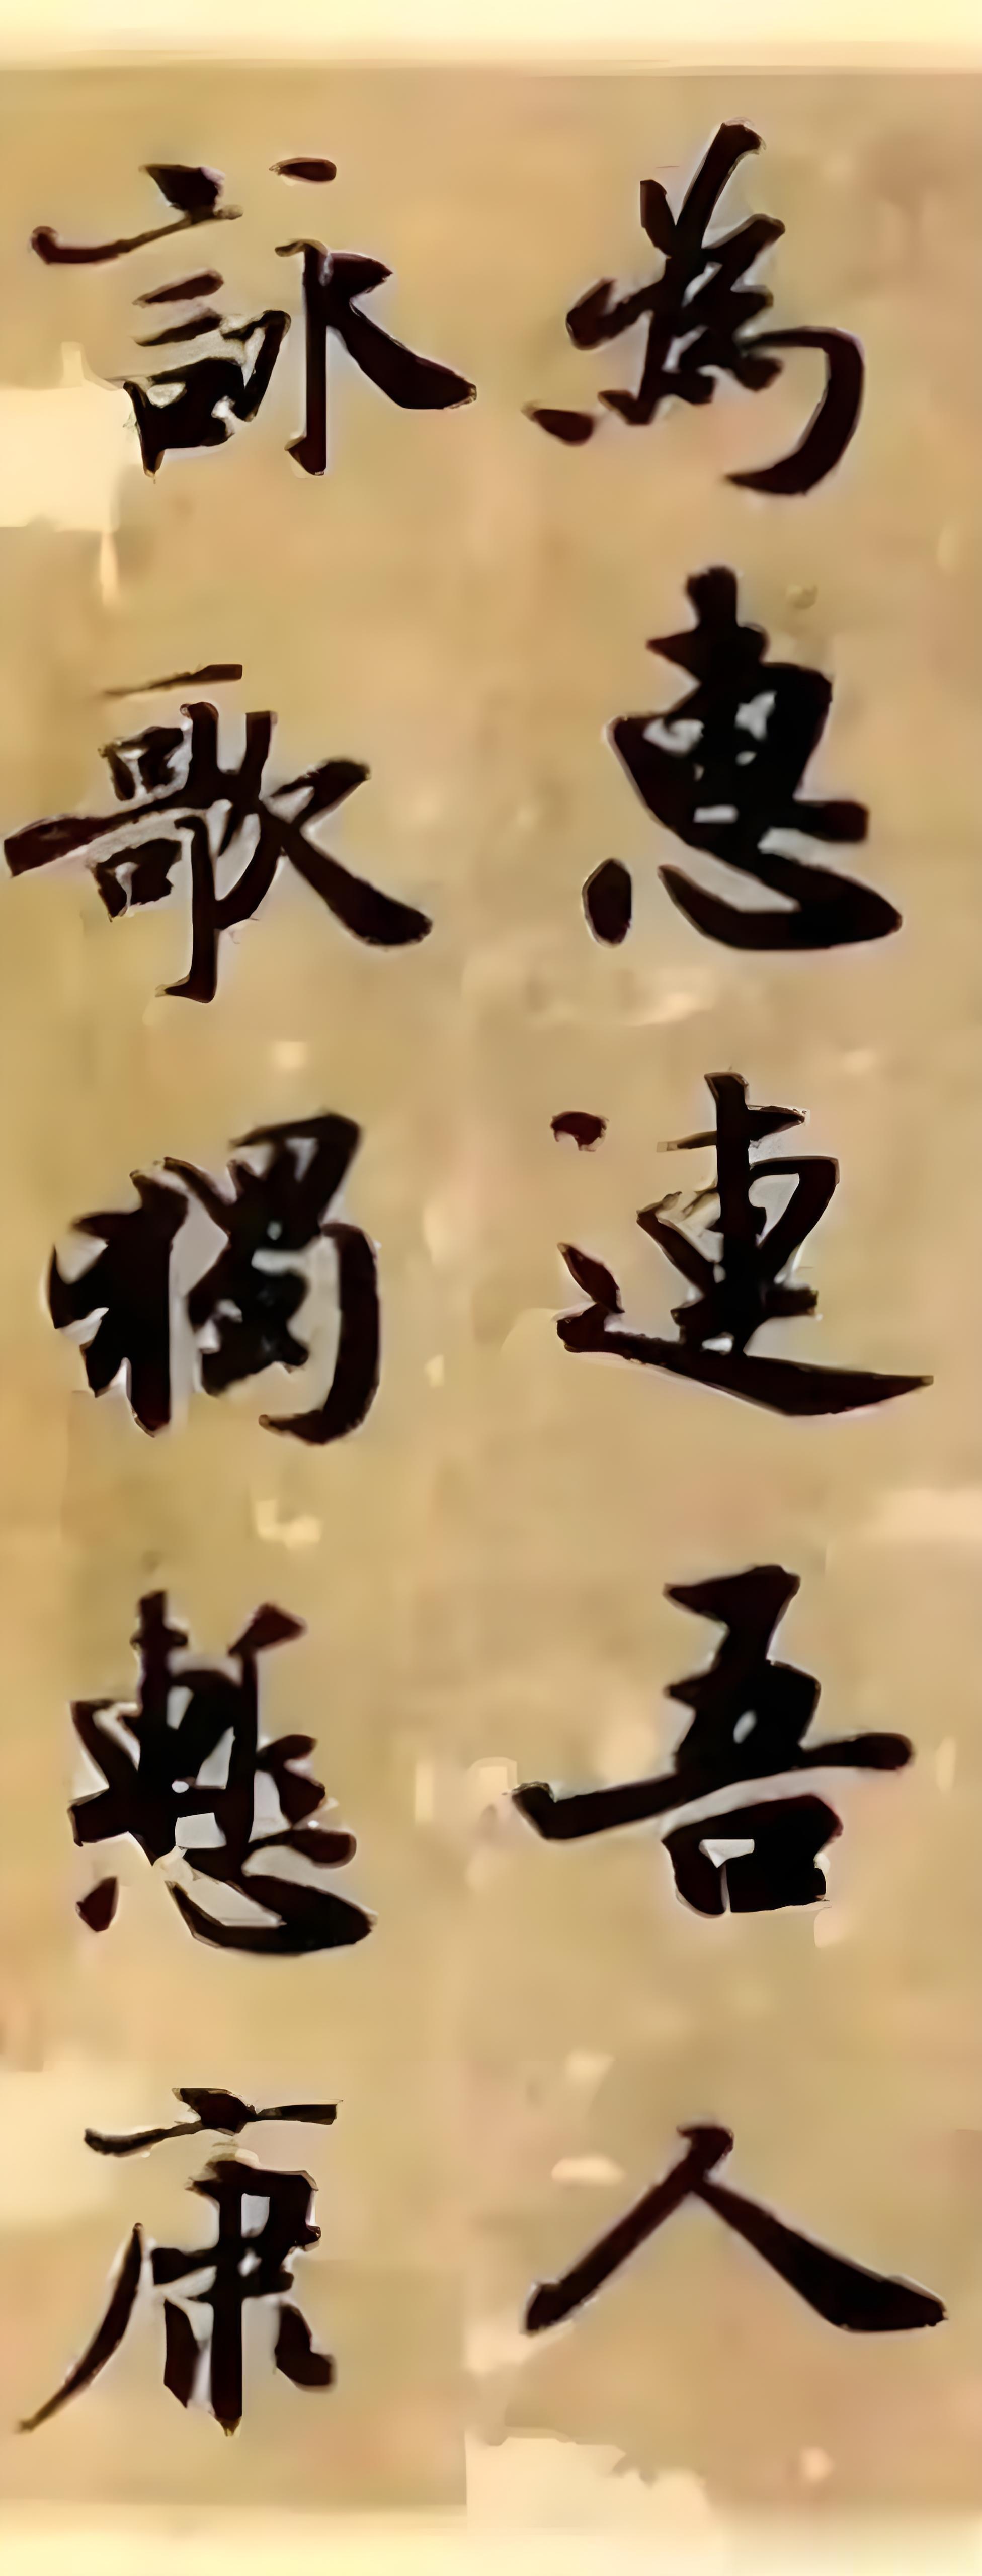 為惠連吾人
詠歌獨慙康